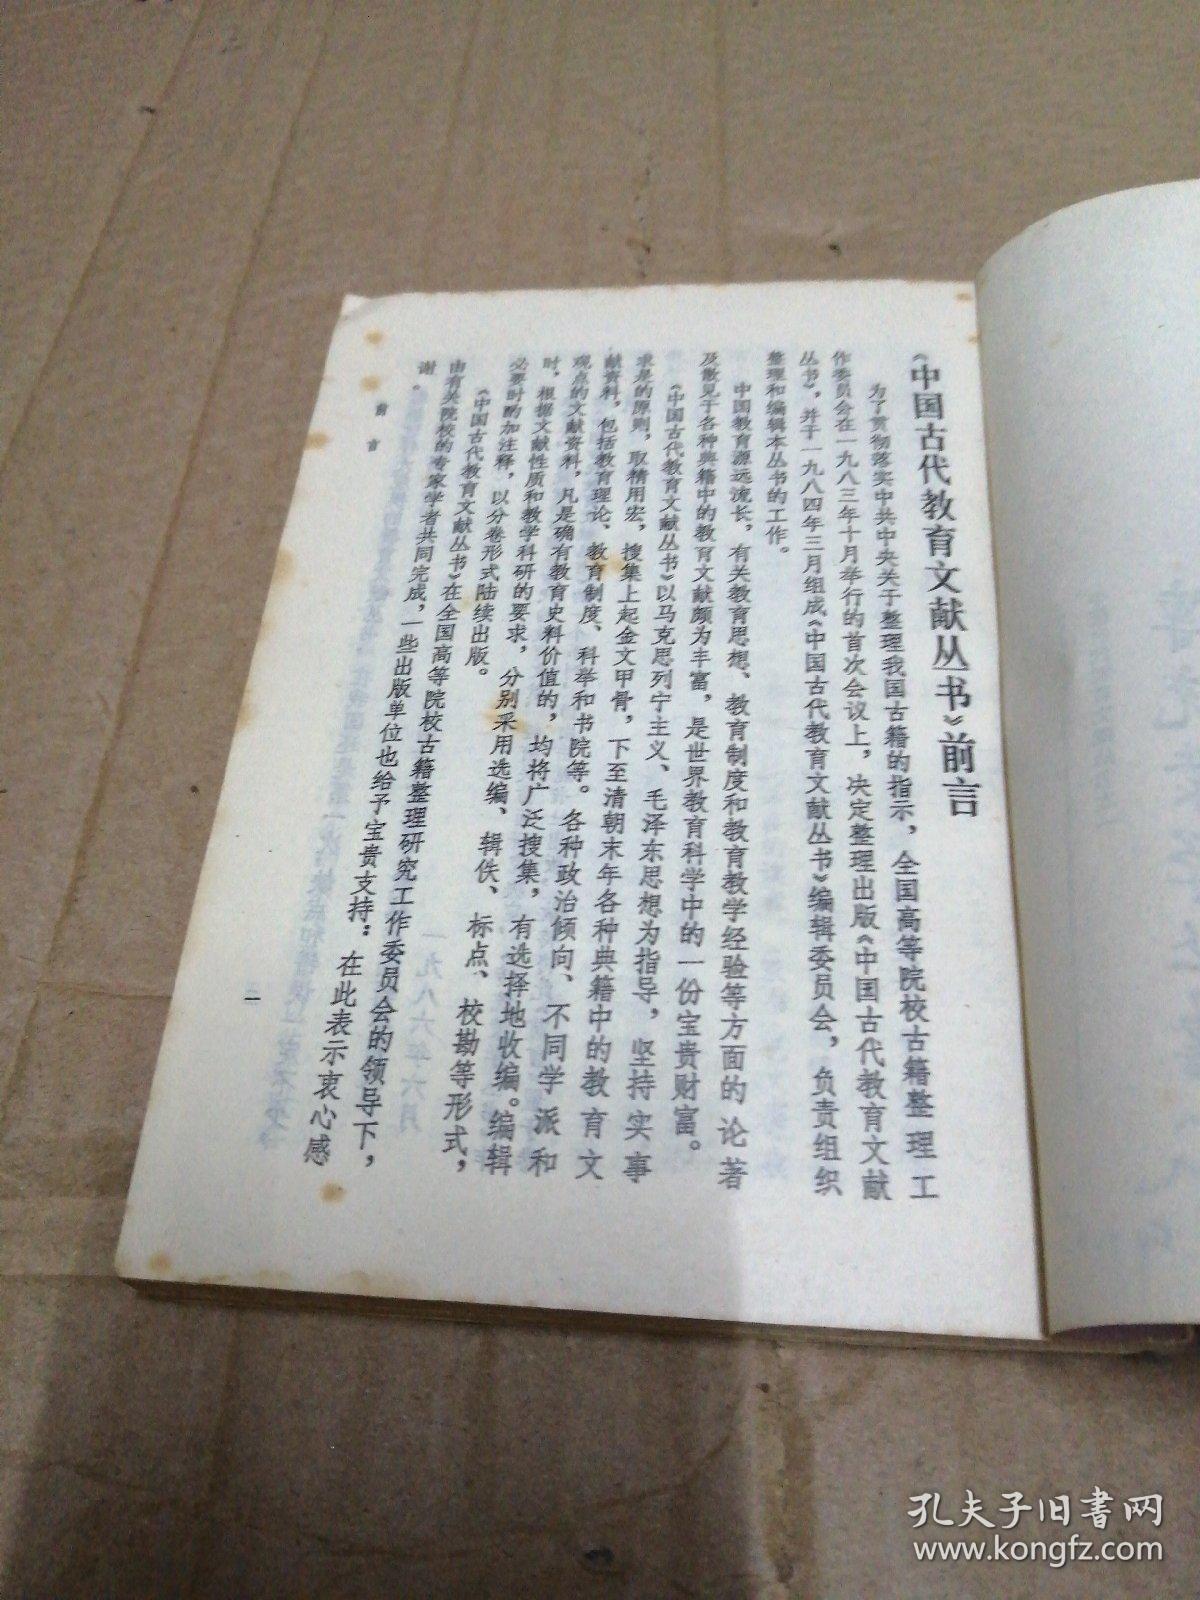 《中国古代教育文献丛书》前言
为了贯彻落实中共中央关于整理我国古籍的指示，全国高等院校古籍整理工
作委员会在一九八三年十月举行的首次会议上，决定整理出版《中国古代教育文献
丛书》，并于一九八四年三月组成《中国古代教育文献丛书》编辑委员会，负责组织
整理和编辑本丛书的工作。
中国教育源远流长，有关教育思想、教育制度和教育教学经验等方面的论著
及散见于各种典籍中的教育文献颇为丰富，是世界教育科学中的一份宝贵财富。
《中国古代教育文献丛书》以马克思列宁主义、毛泽东思想为指导，坚持实事
求是的原则，取精用宏，搜集上起金文甲骨，下至清朝末年各种典籍中的教育文
献资料，包括教育理论、教育制度、科举和书院等。各种政治倾向、不同学派和
观点的文献资料，凡是确有教育史料价值的，均将广泛搜集，有选择地收编。编辑
时，根据文献性质和教学科研的要求，分别采用选编、辑佚、标点、校勘等形式，
必要时酌加注释，以分卷形式陆续出版。
《中国古代教育文献丛书》在全国高等院校古籍整理研究工作委员会的领导下，
由有关院校的专家学者共同完成，一些出版单位也给予宝贵支持：在此表示衷心感
谢。
前言
一
孔夫子旧书网
www.kongfz.com